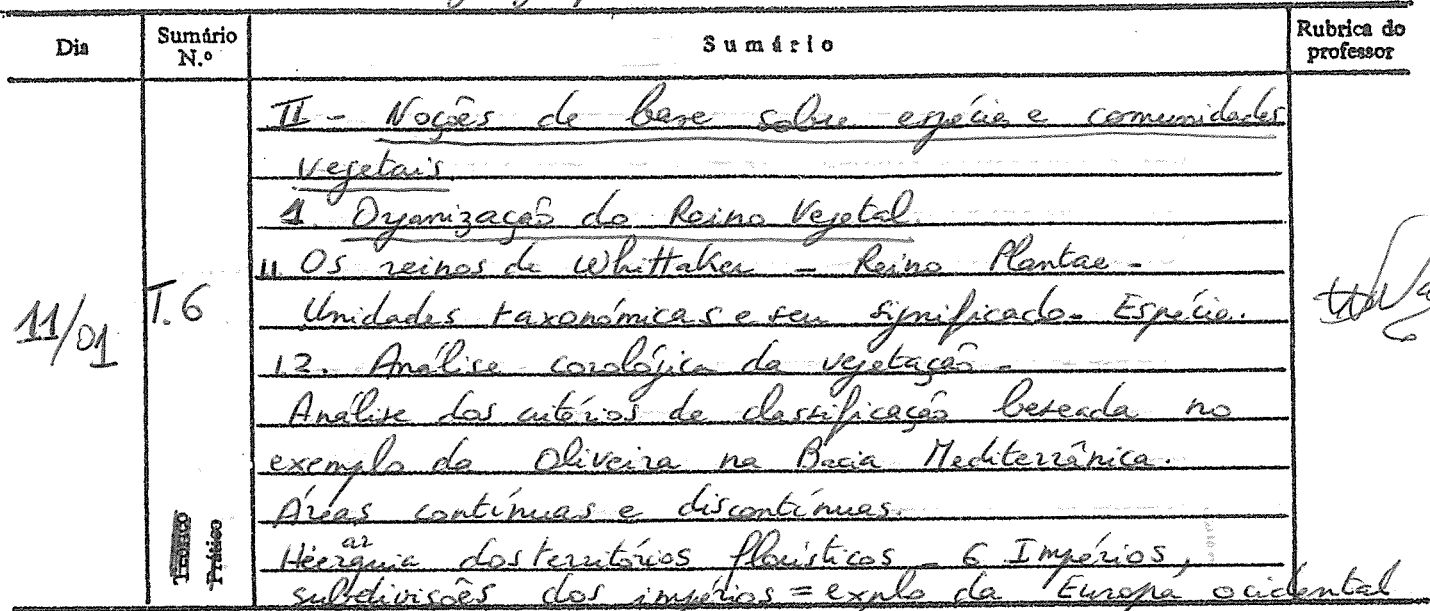 Dia
Sumário N.º
Sumário
Rubrica do professor
11/01
T.6
II - Noções de base sobre espécie e comunidades
vegetais.
1. Organização do Reino Vegetal.
11. Os reinos de Whittaker - Reino Plantae -
Unidades taxonómicas e seu significado. Espécie.
1.2. Análise corológica da vegetação -
Análise dos critérios de classificação baseada no
exemplo da Oliveira na Bacia Mediterrânica.
Áreas contínuas e discontínuas.
Hierarquia dos territórios florísticos - 6 Impérios,
subdivisões dos impérios = explo da Europa ocidental
Teórico
Prático